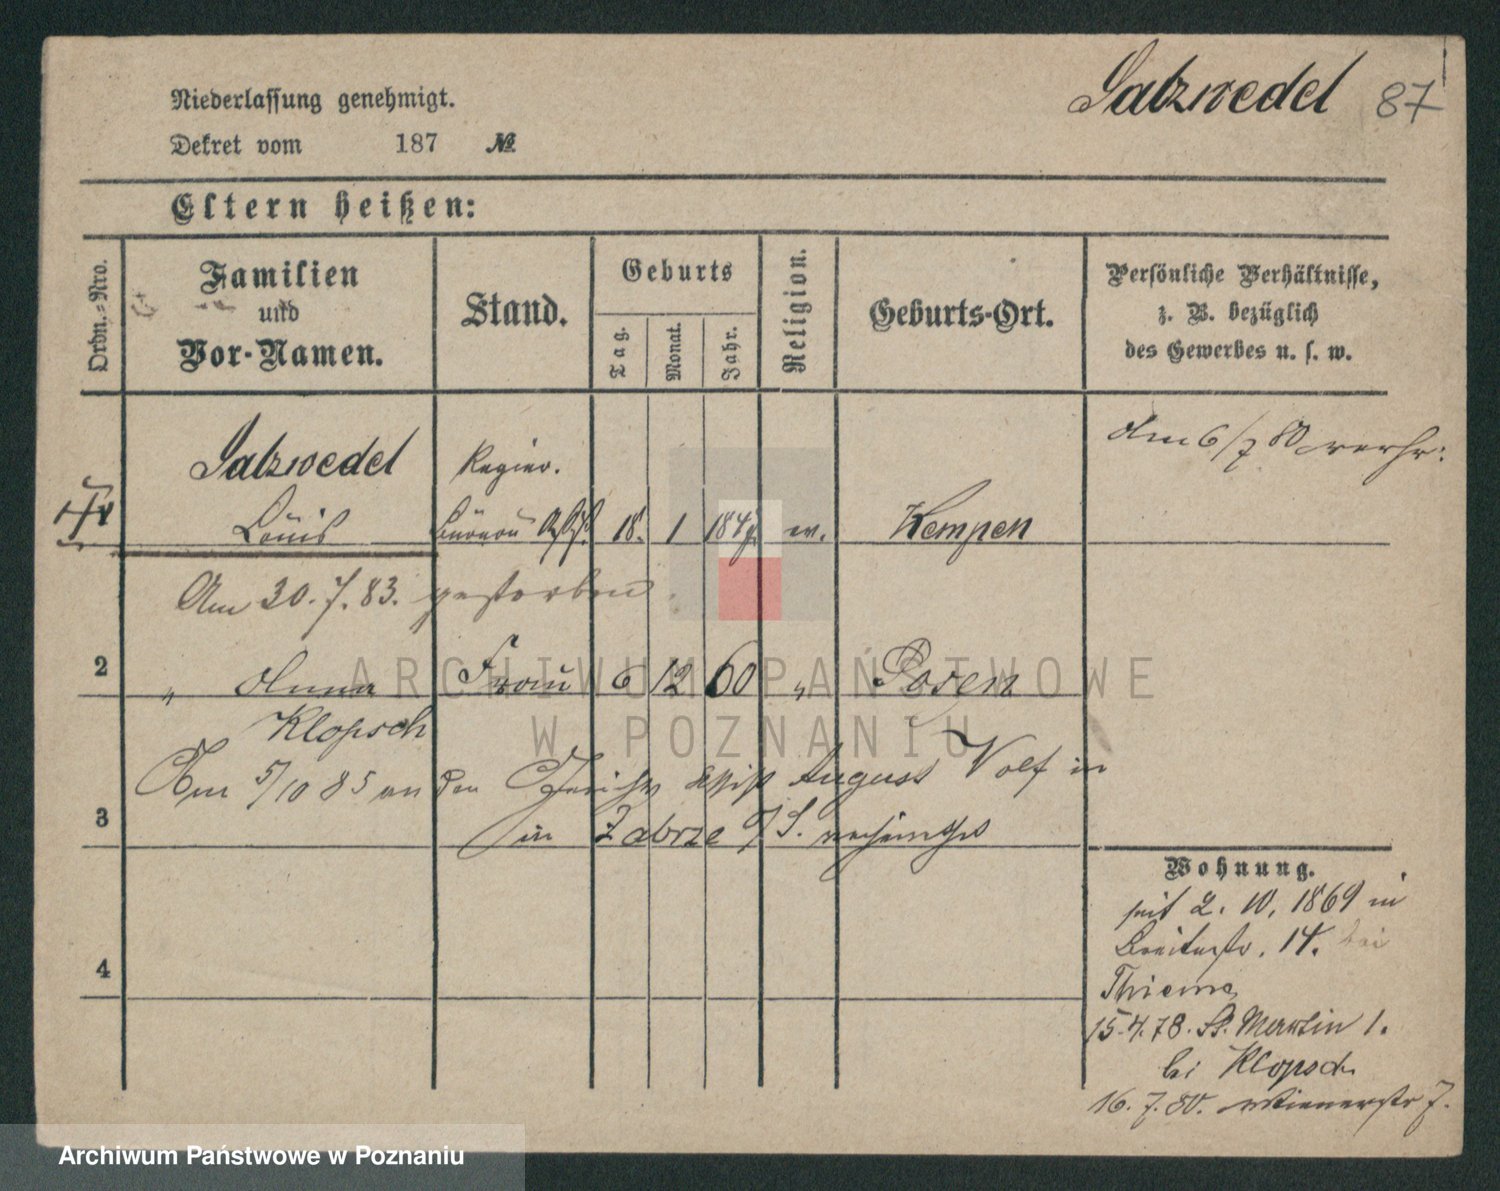 Salzwedel 87
Niederlassung genehmigt.
Dekret vom 187 №
Eltern heißen:
Ordn.-Nro.
Familien
und
Vor-Namen.
Stand.
Geburts
Tag.
Monat.
Jahr.
Religion.
Geburts-Ort.
Persönliche Verhältnisse,
z. B. bezüglich
des Gewerbes u. s. w.
am 6/7 80 verh:
Salzwedel Regier.
Louis Büreau Assist. 18. 1 184 ev. Kempen
Am 30. 7. 83. gestorben.
2 " Anna Frau 6 12 60 " Posen
Klopsch
Am 5/10 85 an den Gerichts Assist August Wolf in
3 in Zabrze O/S. verheirathet
4
Wohnung.
seit 2. 10. 1869 in
Breitestr. 14. bei
Thieme
15.4.78. St. Martin 1.
bei Klopsch
16. 7. 80. Wienerstr 7.
ARCHIWUM PAŃSTWOWE
W POZNANIU
Archiwum Państwowe w Poznaniu